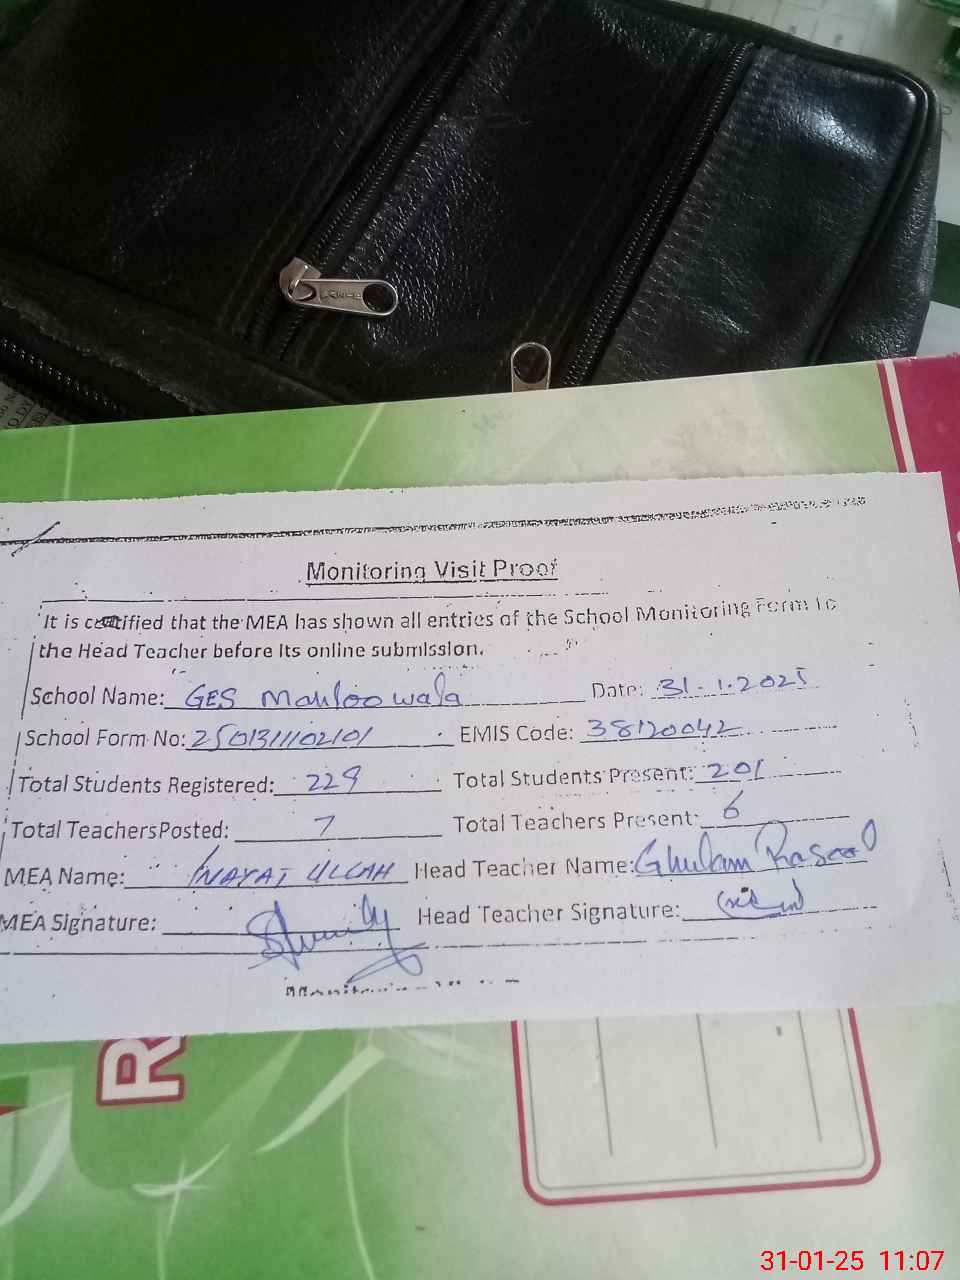 Monitoring Visit Proof
It is certified that the MEA has shown all entries of the School Monitoring Form to
the Head Teacher before its online submission.
School Name: GES Mahloowala Date: 31-1-2025
School Form No: 250131102101 EMIS Code: 38120042
Total Students Registered: 229 Total Students Present: 201
Total TeachersPosted: 7 Total Teachers Present: 6
MEA Name: INAYAT ULLAH Head Teacher Name: Ghulam Rasool
MEA Signature: Head Teacher Signature:
R
31-01-25 11:07